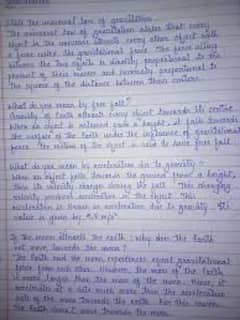 State the universal law of gravitation.
The universal law of gravitation states that every
object in the universe attracts every other object with
a force called the gravitational force. The force acting
between the two objects is directly proportional to the
product of their masses and inversely proportional to
the square of the distance between their centres.
What do you mean by free fall?
Gravity of Earth attracts every object towards its centre.
When an object is released from a height, it falls towards
the surface of the Earth under the influence of gravitational
force. The motion of the object is said to have free fall.
What do you mean by acceleration due to gravity?
When an object falls towards the ground from a height,
then its velocity changes during the fall. This changing
velocity produces acceleration in the object. This
acceleration is known as acceleration due to gravity. Its
value is given by 9.8 m/s²
If the moon attracts the earth, why does the earth
not move towards the moon?
The Earth and the moon experiences equal gravitational
force from each other. However, the mass of the Earth
is much larger than the mass of the moon. Hence, it
accelerates at a rate much less than the acceleration
rate of the moon towards the Earth. For this reason,
the Earth does not move towards the moon.